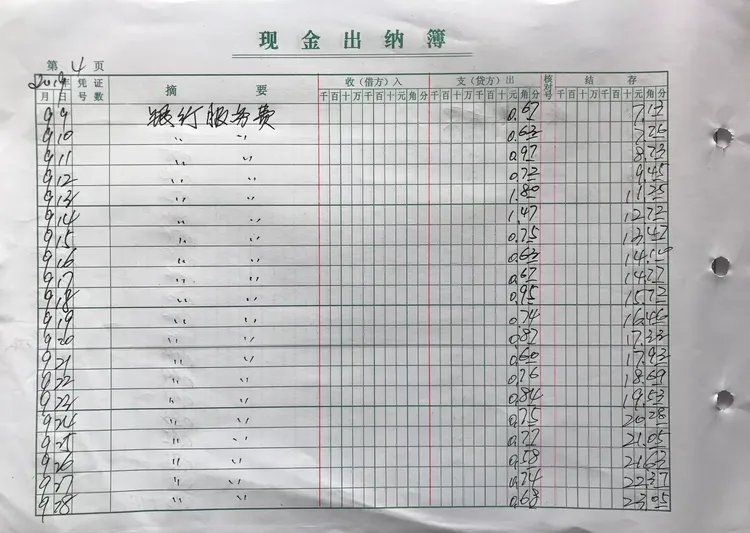 现金出纳簿
第 4 页
2019年 凭证号数 摘要 收（借方）入 支（贷方）出 核对号 结存
月 日 千百十万千百十元角分 千百十万千百十元角分 千百十万千百十元角分
9 9 银行服务费 0.67 7.13
9 10 〃 〃 0.63 7.76
9 11 〃 〃 0.97 8.73
9 12 〃 〃 0.72 9.45
9 13 〃 〃 1.80 11.25
9 14 〃 〃 1.47 12.72
9 15 〃 〃 0.75 13.47
9 16 〃 〃 0.63 14.10
9 17 〃 〃 0.67 14.77
9 18 〃 〃 0.95 15.72
9 19 〃 〃 0.74 16.46
9 20 〃 〃 0.87 17.33
9 21 〃 〃 0.60 17.93
9 22 〃 〃 0.76 18.69
9 23 〃 〃 0.84 19.53
9 24 〃 〃 0.75 20.28
9 25 〃 〃 0.77 21.05
9 26 〃 〃 0.58 21.63
9 27 〃 〃 0.74 22.37
9 28 〃 〃 0.68 23.05